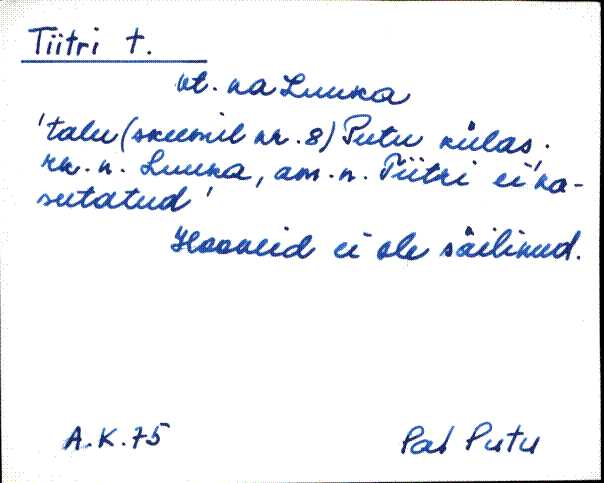 Tiitri t.
vt. ka Luuka
'talu (skeemil nr. 8) Putu külas.
rk. n. Luuka, am. n. Tiitri ei ka-
sutatud'
Hooneid ei ole säilinud.
A.K. 75 Pal Putu